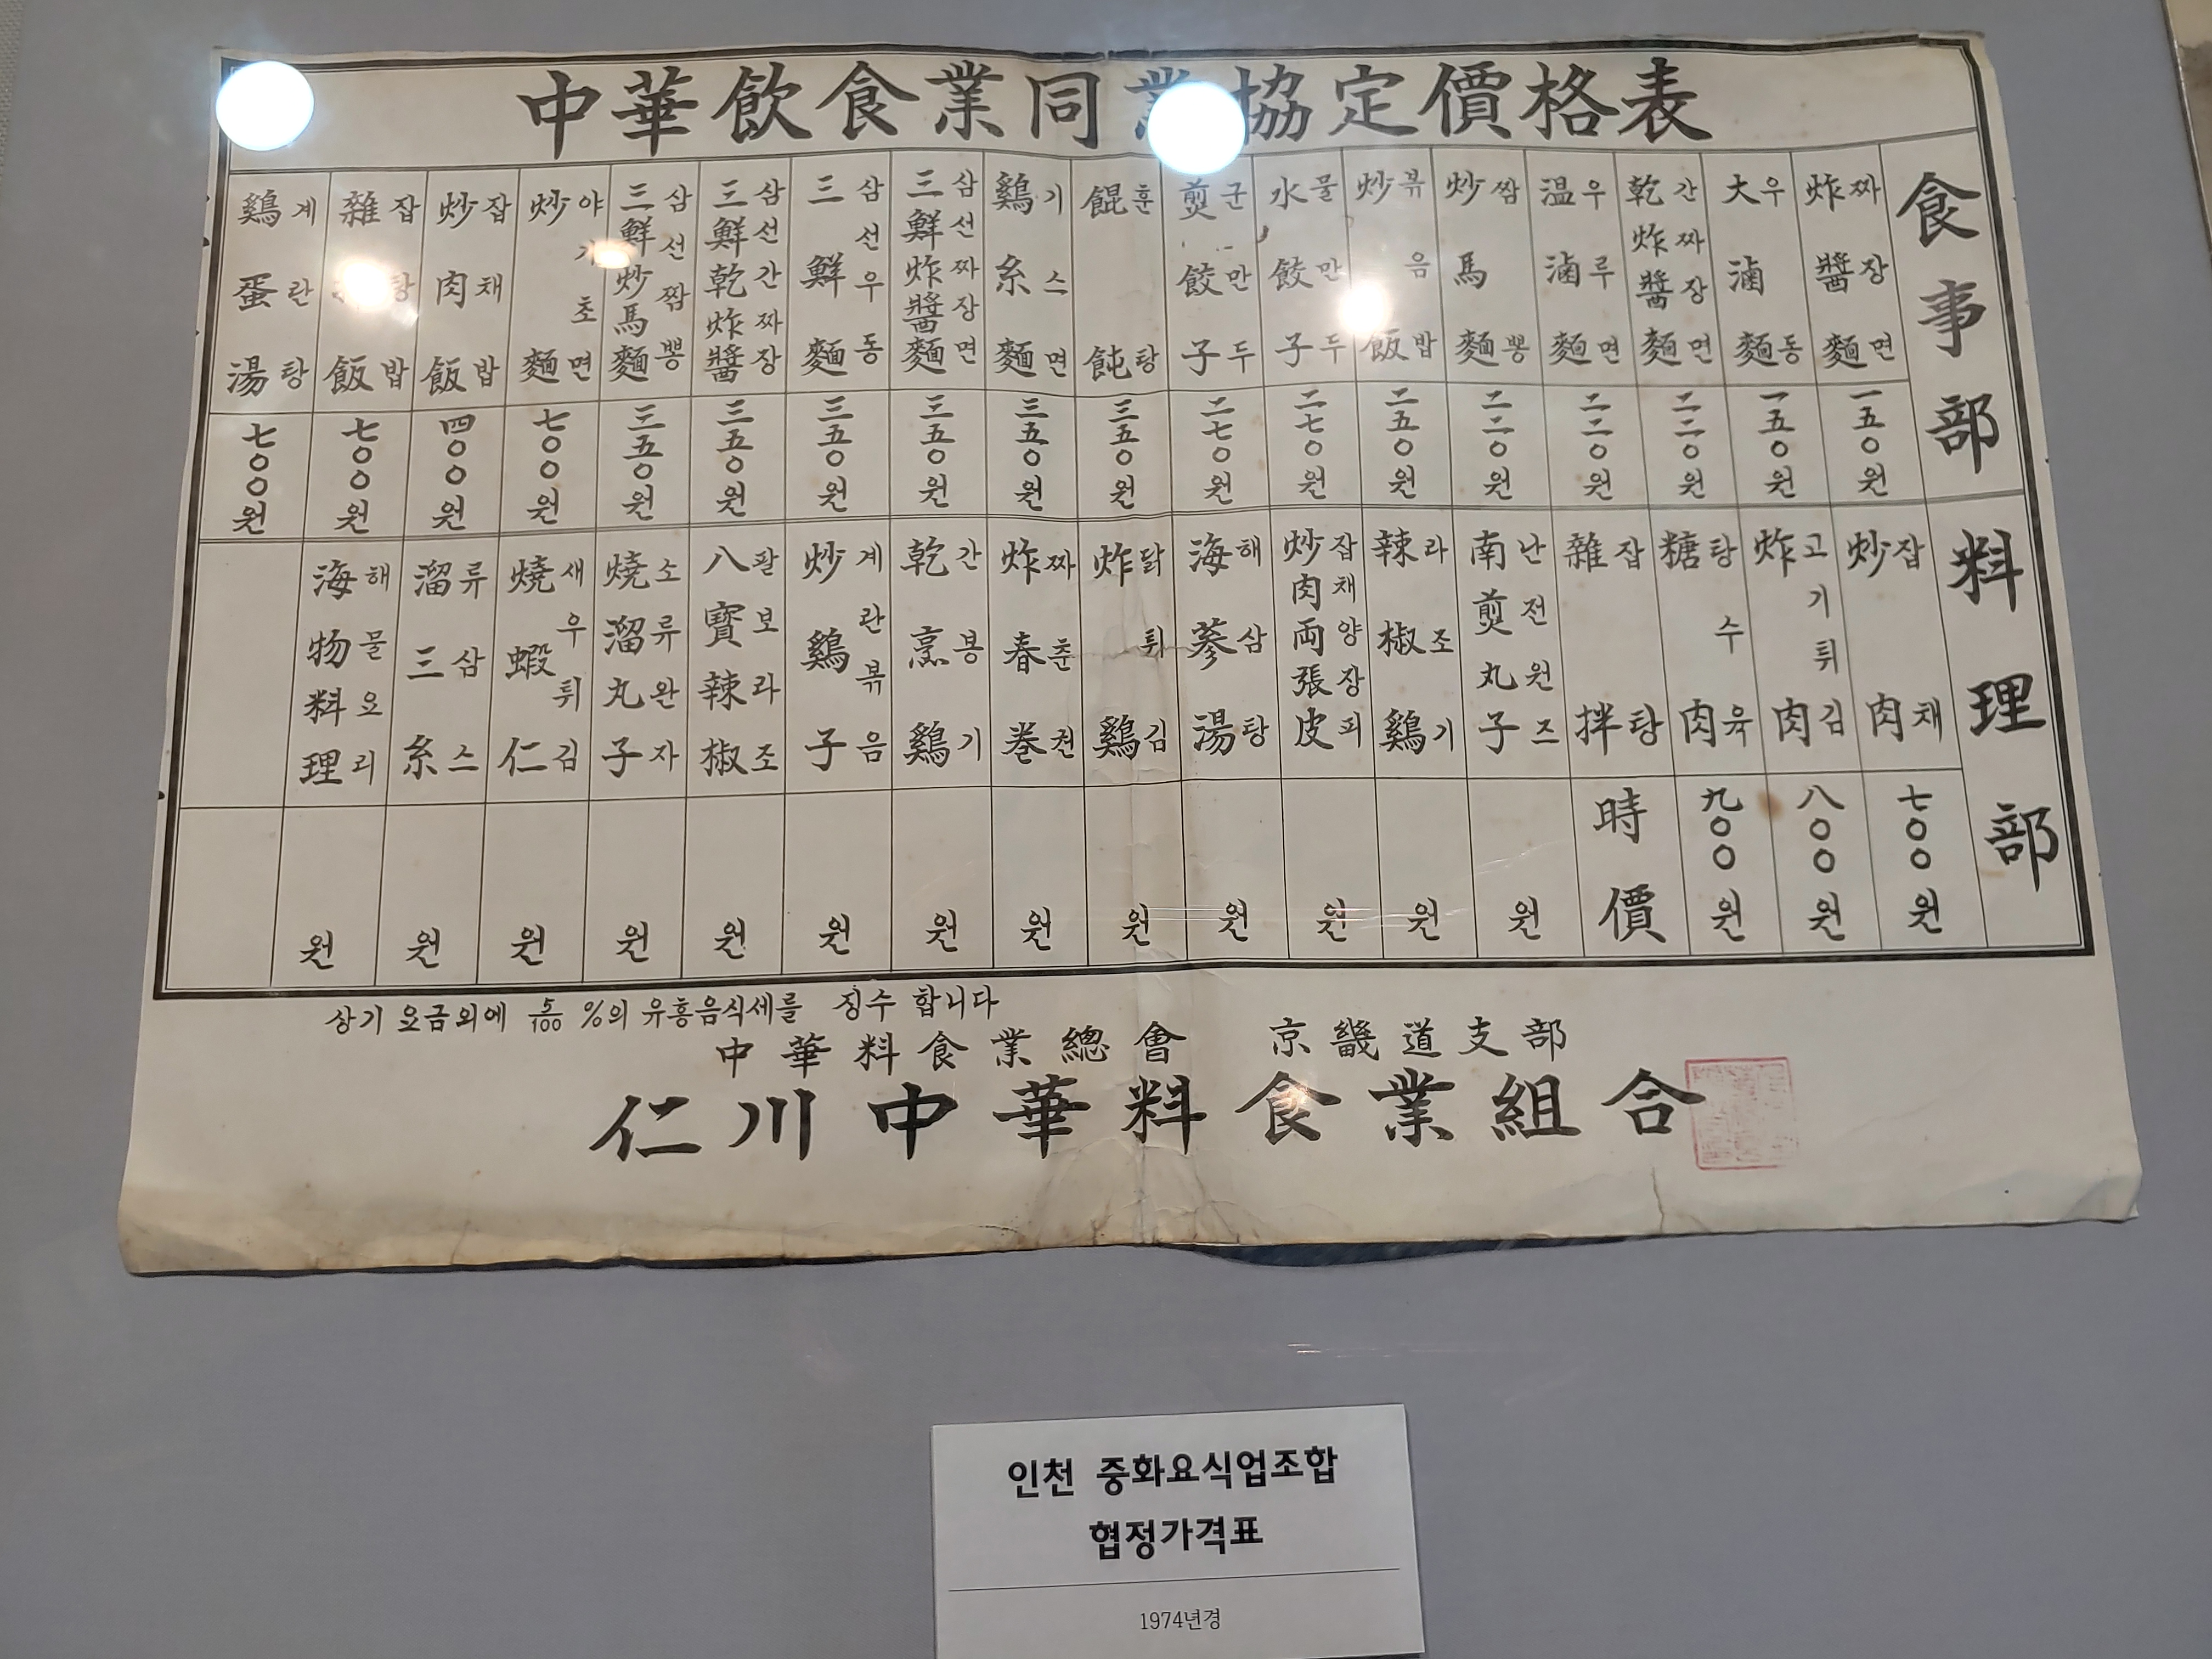 中華飲食業同業協定價格表
食事部
炸醬麵 짜장면 一五〇원
大滷麵 우동 一五〇원
乾炸醬麵 간짜장면 二二〇원
溫滷麵 우루면 二二〇원
炒馬麵 짬뽕 二二〇원
炒飯 볶음밥 二五〇원
水餃子 물만두 二七〇원
煎餃子 군만두 二七〇원
餛飩 훈탕 三五〇원
鷄糸麵 기스면 三五〇원
三鮮炸醬麵 삼선짜장면 三五〇원
三鮮麵 삼선우동 三五〇원
三鮮乾炸醬 삼선간짜장 三五〇원
三鮮炒馬麵 삼선짬뽕 三五〇원
炒麵 야기초면 七〇〇원
炒肉飯 잡채밥 四〇〇원
雜飯 잡탕밥 七〇〇원
鷄蛋湯 계란탕 七〇〇원
料理部
炒肉 잡채 七〇〇원
炸肉 고기튀김 八〇〇원
糖肉 탕수육 九〇〇원
雜拌 잡탕 時價
南煎丸子 난전원즈 원
辣椒鷄 라조기 원
炒肉両張皮 잡채양장피 원
海蔘湯 해삼탕 원
炸鷄 닭튀김 원
炸春巻 짜춘권 원
乾烹鷄 간봉기 원
炒鷄子 계란볶음 원
八寶辣椒 팔보라조 원
燒溜丸子 소류완자 원
燒蝦仁 새우튀김 원
溜三糸 류삼스 원
海物料理 해물요리 원
상기 요금외에 5/100 %의 유흥음식세를 징수 합니다
中華料食業總會 京畿道支部
仁川中華料食業組合
인천 중화요식업조합
협정가격표
1974년경